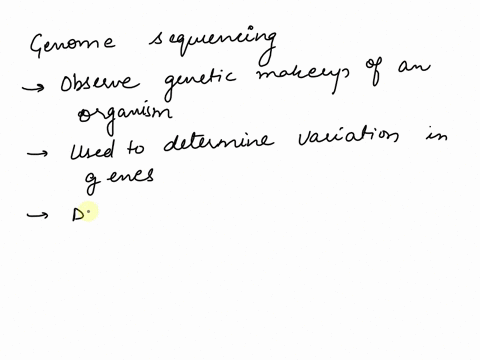 Genome sequencing
→ Observe genetic makeup of an
organism
→ Used to determine variation in
genes
→ D